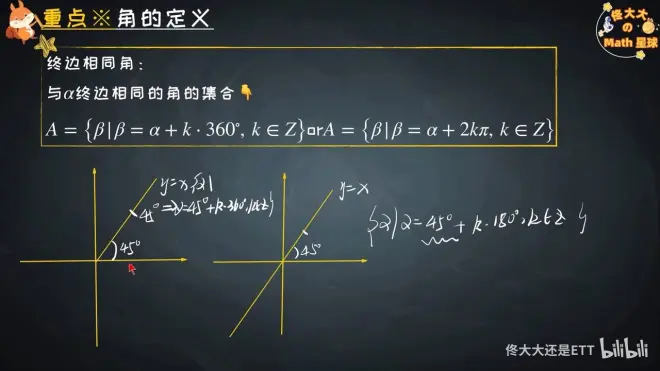 重点※角的定义
佟大大
の
Math 星球
终边相同角：
与α终边相同的角的集合👇
A = {β|β = α + k · 360°, k ∈ Z}orA = {β|β = α + 2kπ, k ∈ Z}
y=x
{α|
45°
α=45°+k·360°,k∈Z}
45°
y=x
45°
{α|α=45°+k·180°,k∈Z}
佟大大还是ETT bilibili